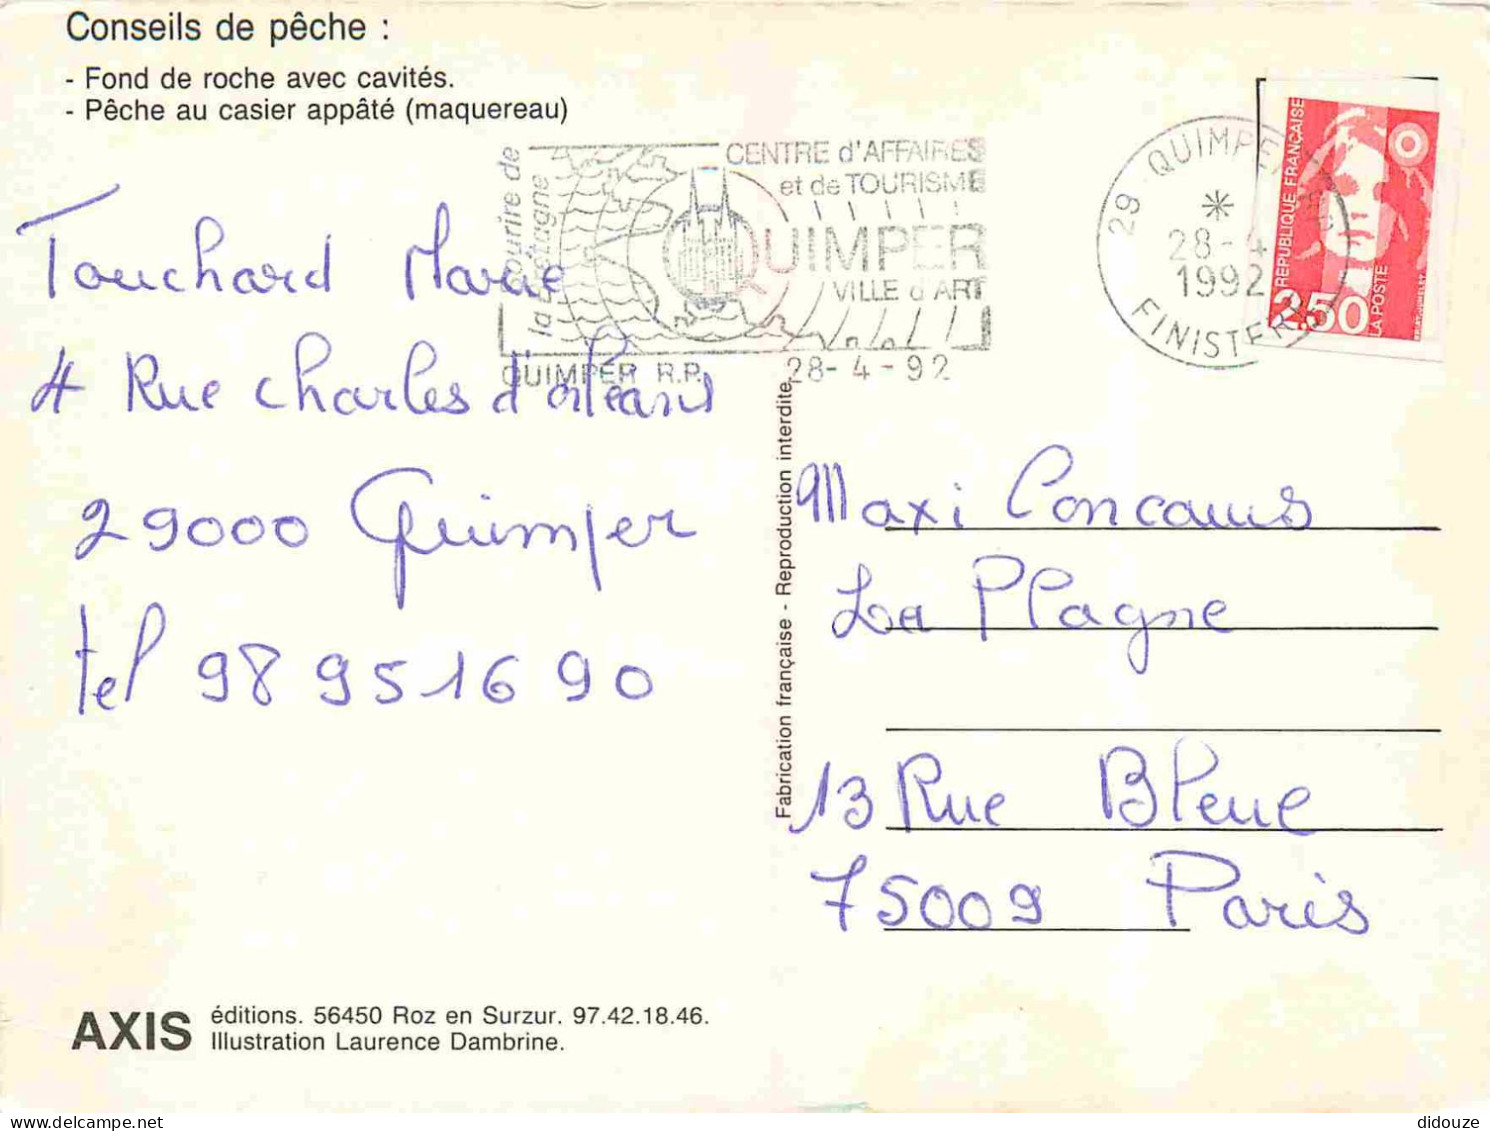 Conseils de pêche :
- Fond de roche avec cavités.
- Pêche au casier appâté (maquereau)
CENTRE d'AFFAIRES
et de TOURISME
QUIMPER
VILLE d'ART
QUIMPER R.P.
28-4-92
29 QUIMPER
28-4
1992
FINISTERE
RÉPUBLIQUE FRANÇAISE
2,50
LA POSTE
Touchard Marie
4 Rue Charles d'orléans
29000 Quimper
tel 98 95 16 90
Fabrication française - Reproduction interdite
Maxi Concours
La Plagne
13 Rue Bleue
75009 Paris
AXIS éditions. 56450 Roz en Surzur. 97.42.18.46.
Illustration Laurence Dambrine.
didouze